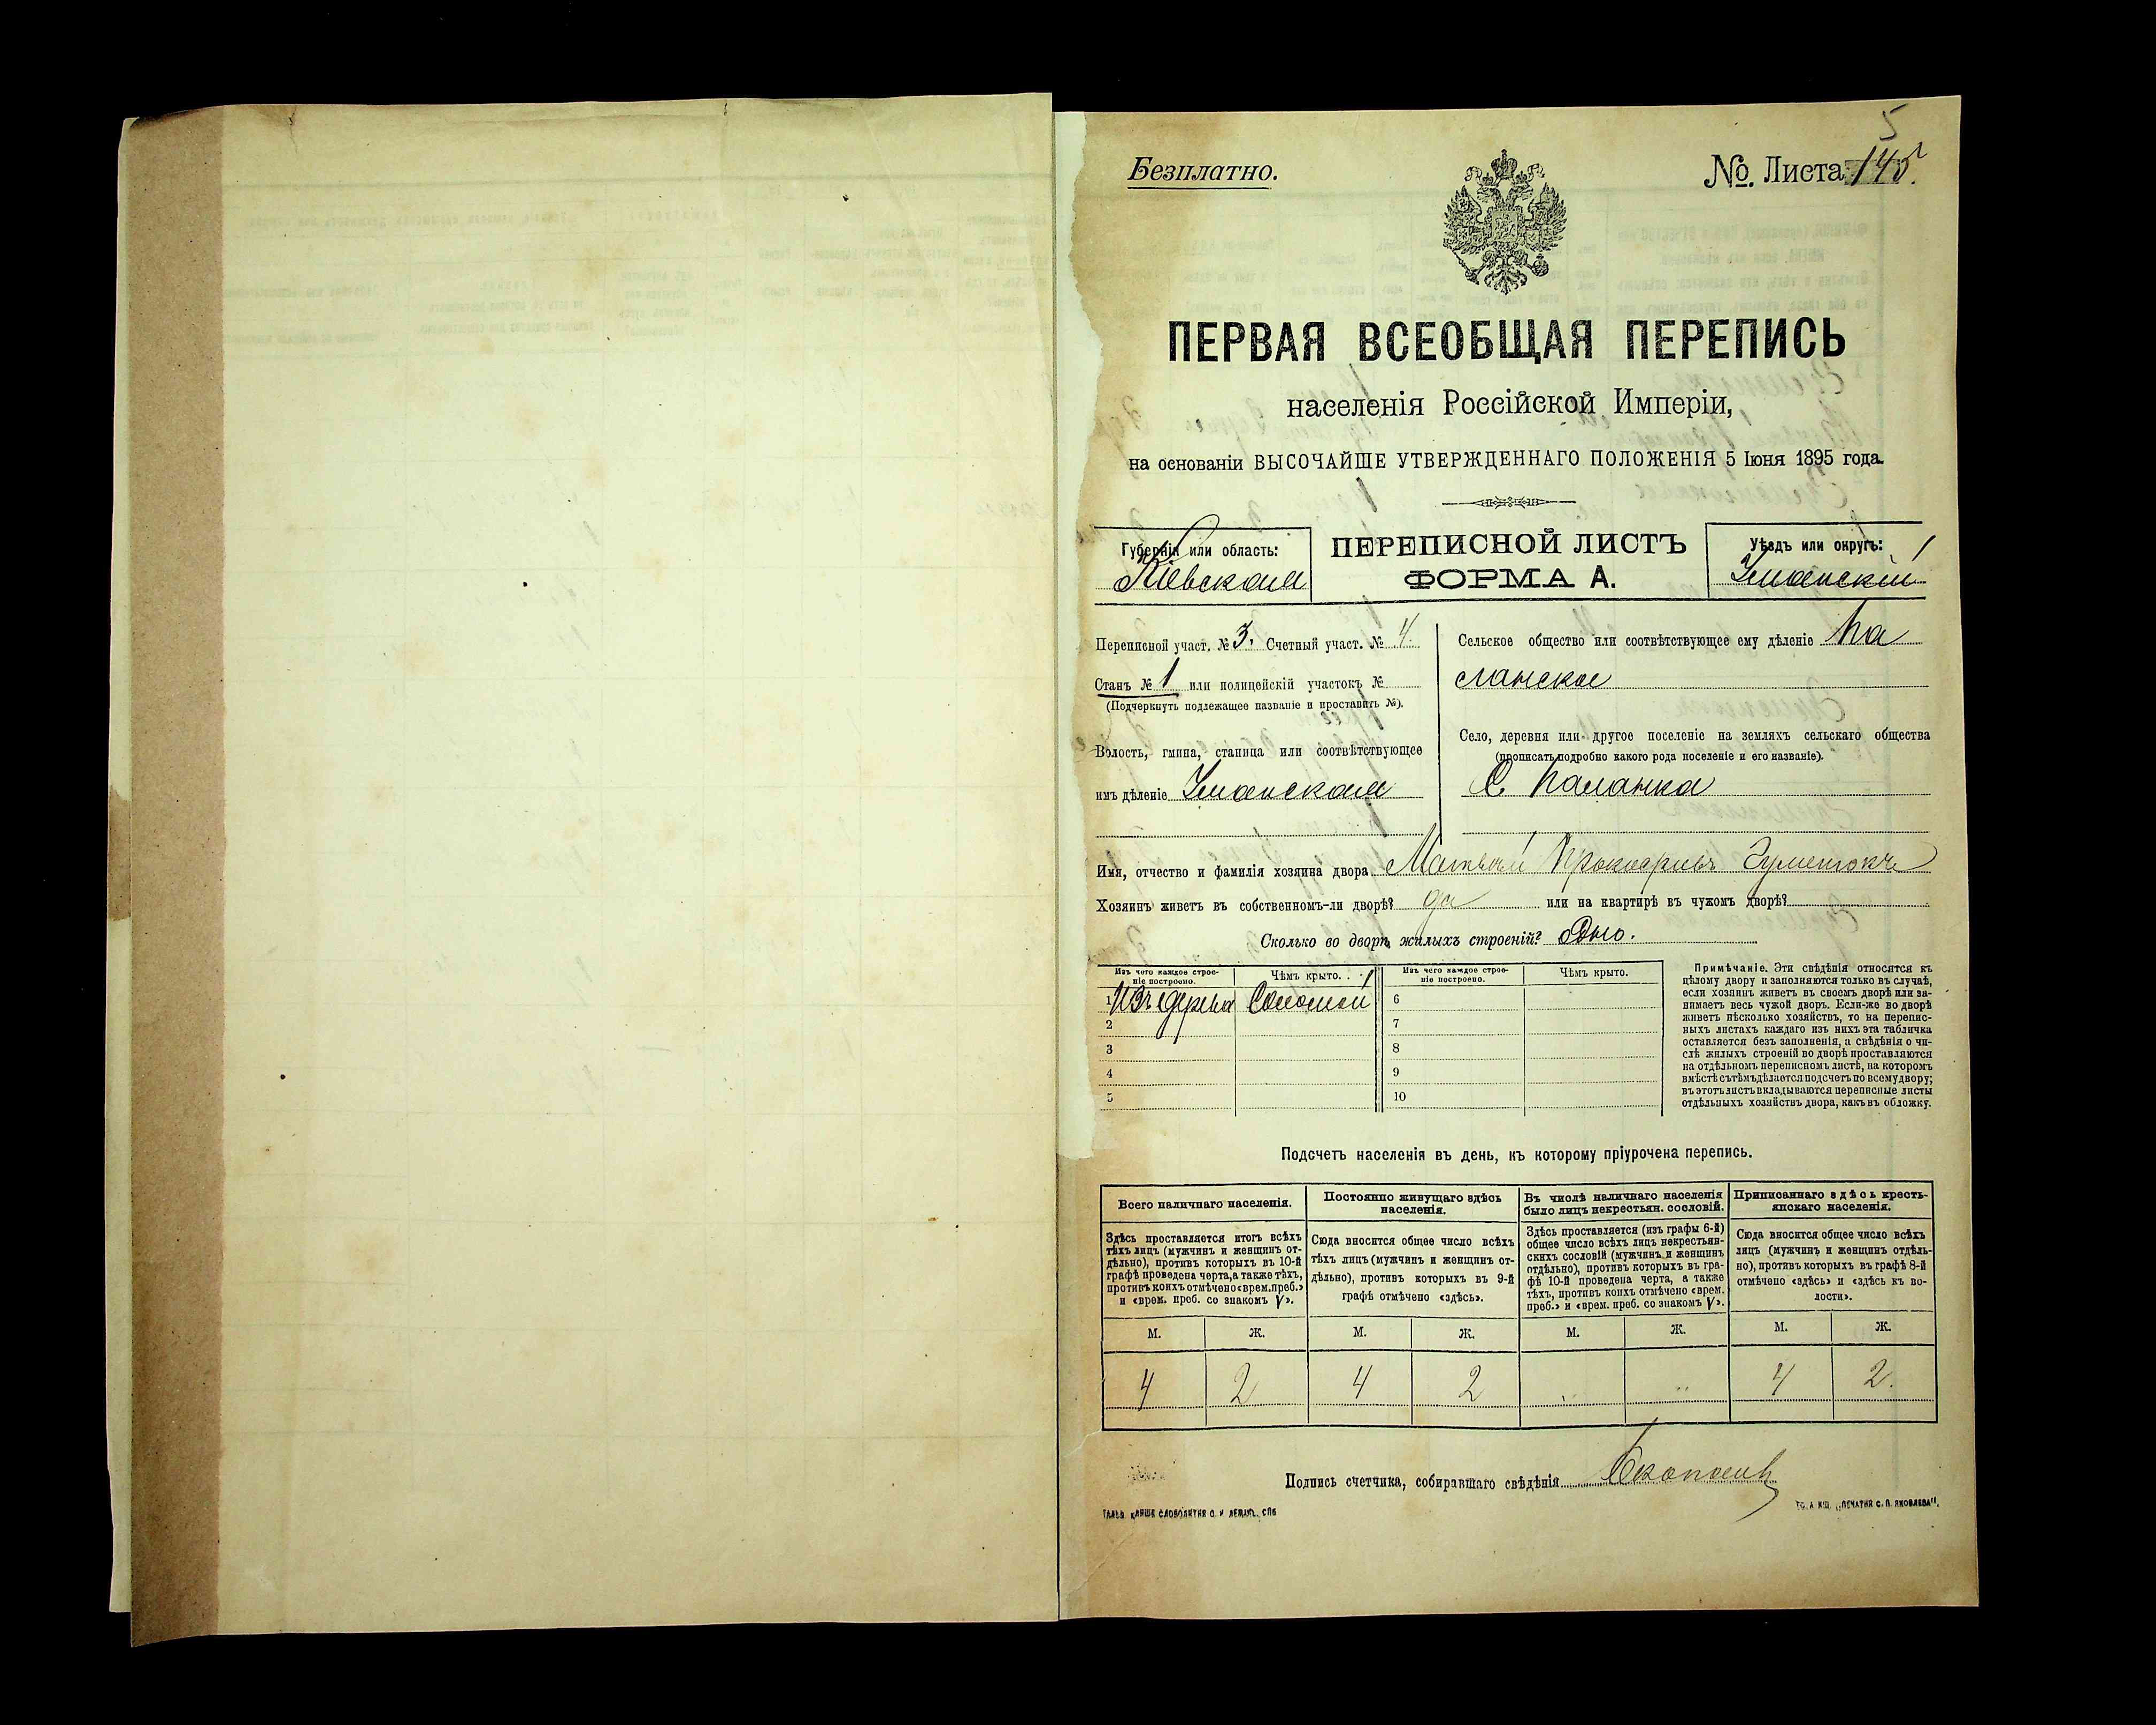 5
Безплатно.
№. Листа 145.
ПЕРВАЯ ВСЕОБЩАЯ ПЕРЕПИСЬ
населенія Россійской Имперіи,
на основаніи ВЫСОЧАЙШЕ УТВЕРЖДЕННАГО ПОЛОЖЕНІЯ 5 Іюня 1895 года.
Губернія или область:
Кіевская
ПЕРЕПИСНОЙ ЛИСТЪ
ФОРМА А.
Уѣздъ или округъ:
Уманскій
Переписной участ. № 3. Счетный участ. № 4.
Станъ № 1 или полицейскій участокъ №
(Подчеркнуть подлежащее названіе и проставить №).
Волость, гмина, станица или соотвѣтствующее
имъ дѣленіе Уманская
Сельское общество или соотвѣтствующее ему дѣленіе Па
ланское
Село, деревня или другое поселеніе на земляхъ сельскаго общества
(прописать подробно какого рода поселеніе и его названіе).
С Паланка
Имя, отчество и фамилія хозяина двора Матвѣй Гуменюкъ
Хозяинъ живетъ въ собственномъ-ли дворѣ? да или на квартирѣ въ чужомъ дворѣ?
Сколько во дворѣ жилыхъ строеній? Одно.
Изъ чего каждое строеніе построено.
Чѣмъ крыто.
Изъ чего каждое строеніе построено.
Чѣмъ крыто.
1 Изъ дерева Соломой 6
2 7
3 8
4 9
5 10
Примѣчаніе. Эти свѣдѣнія относятся къ
цѣлому двору и заполняются только въ случаѣ,
если хозяинъ живетъ въ своемъ дворѣ или за-
нимаетъ весь чужой дворъ. Если-же во дворѣ
живетъ нѣсколько хозяйствъ, то на перепис-
ныхъ листахъ каждаго изъ нихъ эта табличка
оставляется безъ заполненія, а свѣдѣнія о чи-
слѣ жилыхъ строеній во дворѣ проставляются
на отдѣльномъ переписномъ листѣ, на которомъ
вмѣстѣ съ тѣмъ дѣлается подсчетъ по всему двору;
въ этотъ листъ вкладываются переписные листы
отдѣльныхъ хозяйствъ двора, какъ въ обложку.
Подсчетъ населенія въ день, къ которому пріурочена перепись.
Всего наличнаго населенія.
Постоянно живущаго здѣсь
населенія.
Въ числѣ наличнаго населенія
было лицъ некрестьян. сословій.
Приписаннаго здѣсь кресть-
янскаго населенія.
Здѣсь проставляется итогъ всѣхъ
тѣхъ лицъ (мужчинъ и женщинъ от-
дѣльно), противъ которыхъ въ 10-й
графѣ проведена черта, а также тѣхъ,
противъ коихъ отмѣчено «врем. преб.»
и «врем. преб. со знакомъ V».
Сюда вносится общее число всѣхъ
тѣхъ лицъ (мужчинъ и женщинъ от-
дѣльно), противъ которыхъ въ 9-й
графѣ отмѣчено «здѣсь».
Здѣсь проставляется (изъ графы 6-й)
общее число всѣхъ лицъ некрестьян-
скихъ сословій (мужчинъ и женщинъ
отдѣльно), противъ которыхъ въ гра-
фѣ 10-й проведена черта, а также
тѣхъ, противъ коихъ отмѣчено «врем.
преб.» и «врем. преб. со знакомъ V».
Сюда вносится общее число всѣхъ
лицъ (мужчинъ и женщинъ отдѣль-
но), противъ которыхъ въ графѣ 8-й
отмѣчено «здѣсь» и «здѣсь къ во-
лости».
М. Ж. М. Ж. М. Ж. М. Ж.
4 2 4 2 " " 4 2.
Подпись счетчика, собиравшаго свѣдѣнія